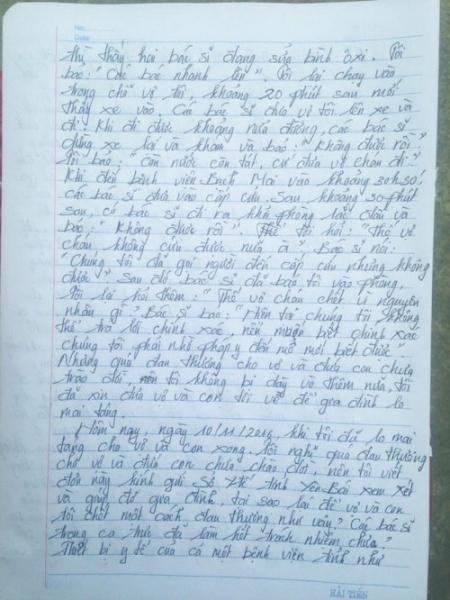 thì thấy hai bác sĩ đang sửa bình ôxi. Tôi
bảo: "Các bác nhanh lên". Tôi lại chạy vào
trong chỗ vợ tôi, khoảng 20 phút sau mới
thấy xe vào. Các bác sĩ cho vợ tôi lên xe và
đi. Khi đi được khoảng nửa đường, các bác sĩ
dừng xe lại và khám và bảo: "Không được rồi".
Tôi bảo: "Còn nước còn tát, cứ đưa vợ cháu đi."
Khi đến bệnh viện Bạch Mai vào khoảng
các bác sĩ đưa vào cấp cứu. Sau khoảng 30 phút
sau, có bác sĩ đi ra khỏi phòng lắc đầu và
bảo: "Không được rồi". Thế tôi hỏi: "Thế vợ
cháu không cứu được nữa à". Bác sĩ nói:
"Chúng tôi đã gọi người đến cấp cứu nhưng không
được". Sau đó bác sĩ đã bảo tôi vào phòng,
tôi lại hỏi thêm: "Thế vợ cháu chết vì nguyên
nhân gì". Bác sĩ bảo: "Hiện tại chúng tôi không
thể trả lời chính xác, nên muốn biết chính xác
chúng tôi phải nhờ pháp y đến mổ mới biết được".
Nhưng quá đau thương cho vợ và đứa con chưa
trào đời, nên tôi không bị dày vò thêm nữa, tôi
đã xin cho vợ và con tôi về để gia đình lo
mai táng.
Hôm nay, ngày 10/11/2016, khi tôi đã lo mai
táng cho vợ và con xong. Tôi nghĩ quá đau thương
cho vợ và đứa con chưa chào đời, nên tôi viết
đơn này kính gửi Sở Y tế tỉnh Yên Bái xem xét
và giúp đỡ gia đình, tại sao lại để vợ và con
tôi chết một cách đau thương như vậy? Các bác sĩ
trong ca trực đã làm hết trách nhiệm chưa?
Thiết bị y tế của cả một bệnh viện tỉnh như
HẢI TIẾN